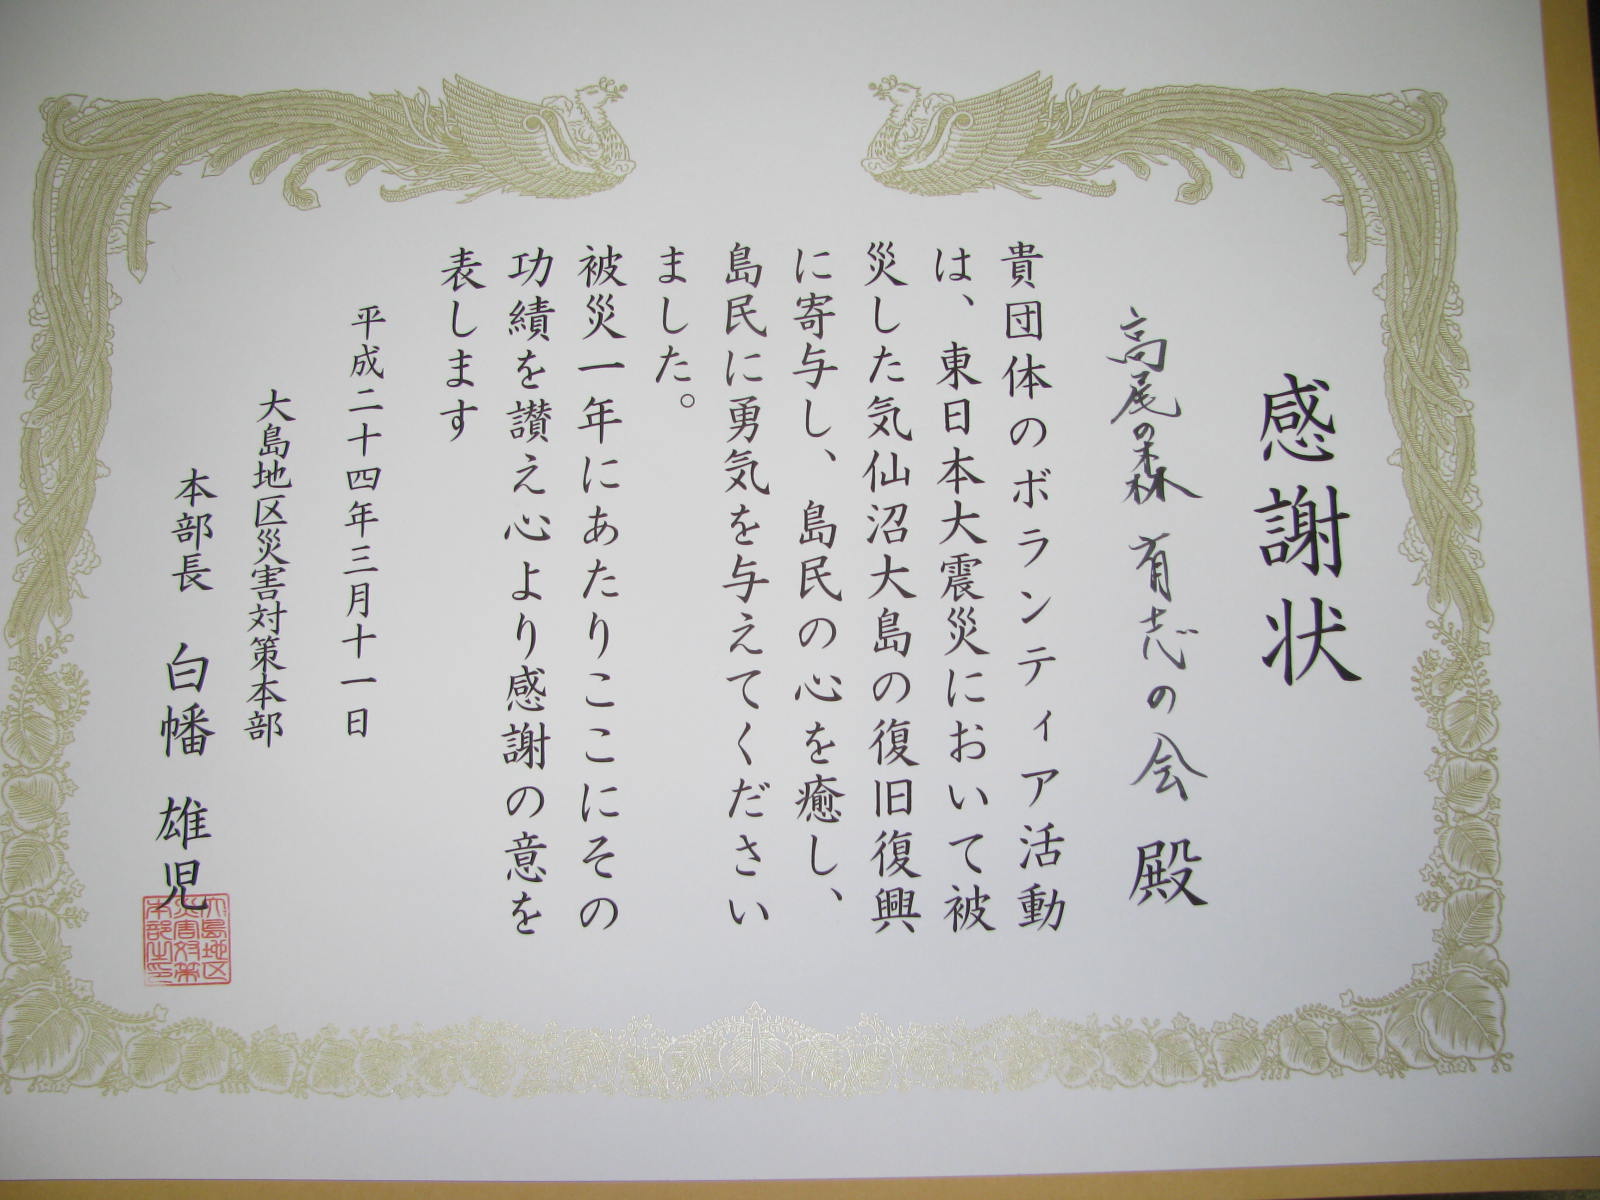 感謝状
高尾の森 有志の会 殿
貴団体のボランティア活動
は、東日本大震災において被
災した気仙沼大島の復旧復興
に寄与し、島民の心を癒し、
島民に勇気を与えてください
ました。
被災一年にあたりここにその
功績を讃え心より感謝の意を
表します
平成二十四年三月十一日
大島地区災害対策本部
本部長 白幡 雄児
大島地区
災害対策
本部之印